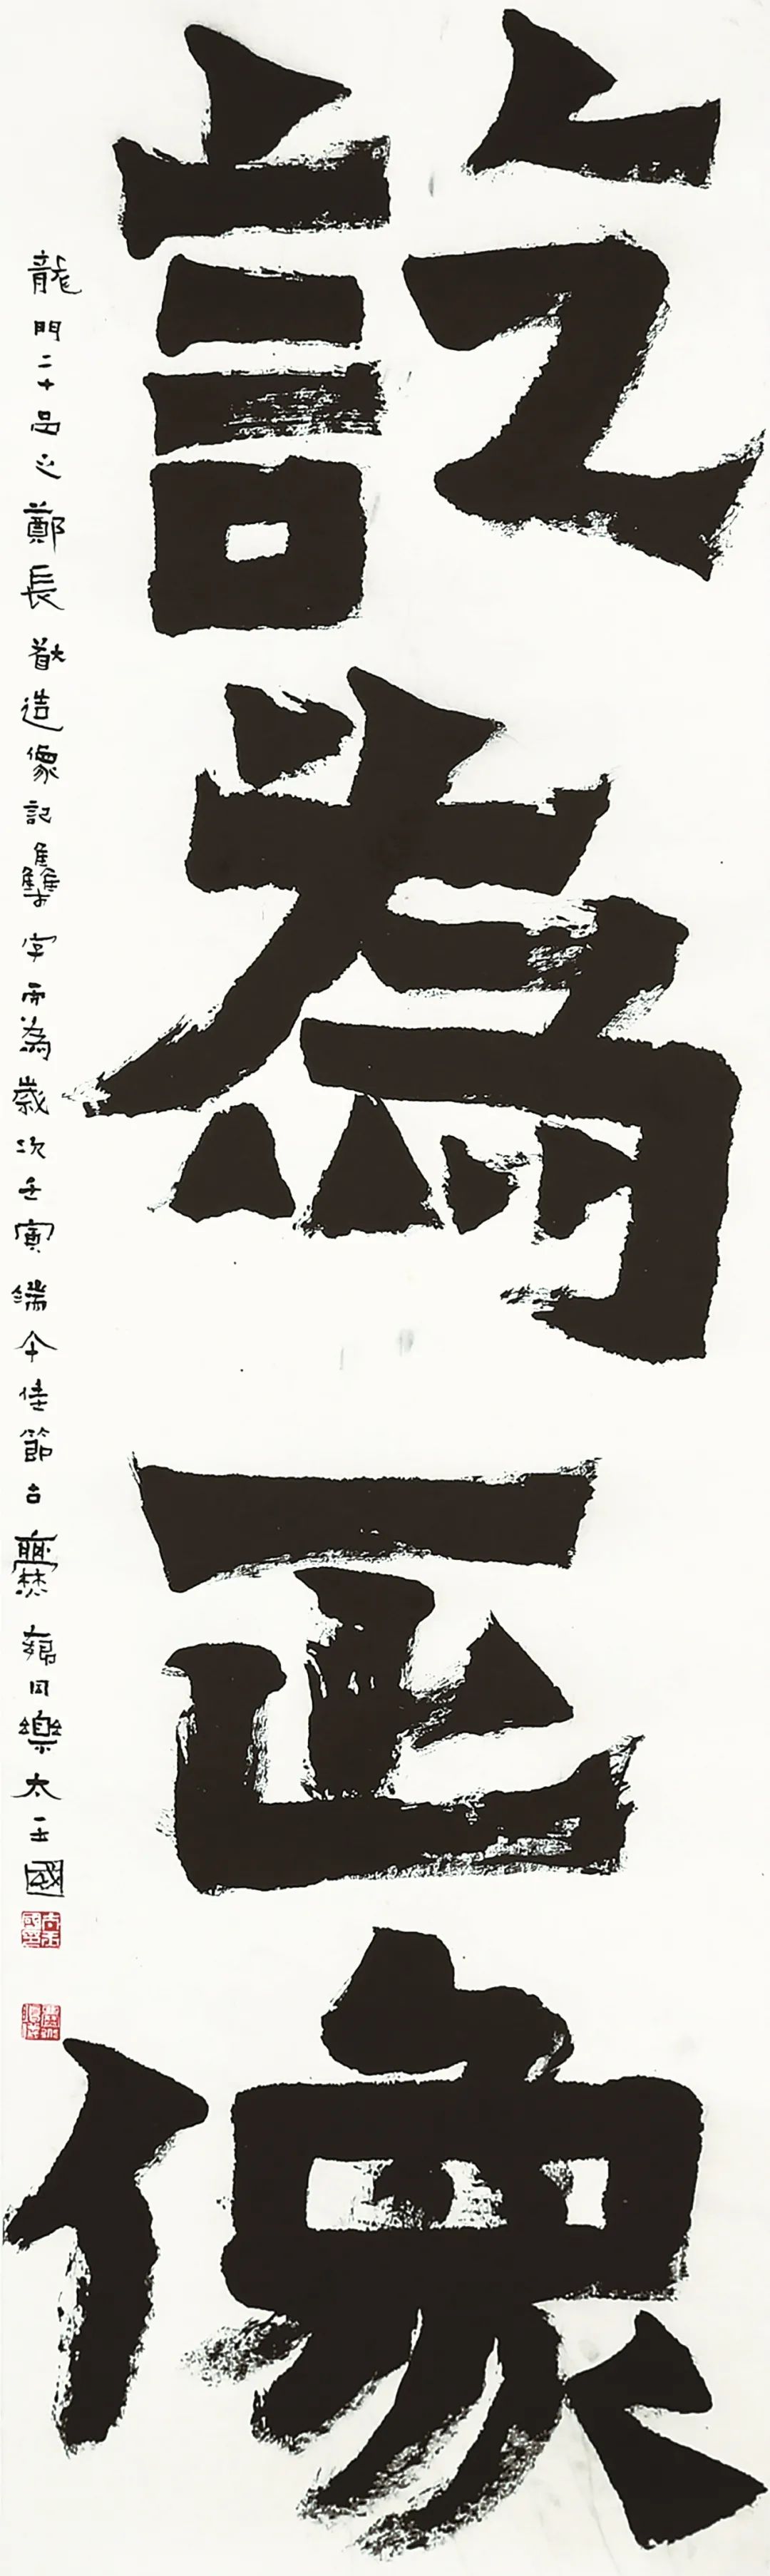 訖為正像
龍門二十品之鄭長猷造像記雧字而為歲次壬寅端午佳節古爨鄉同樂太國